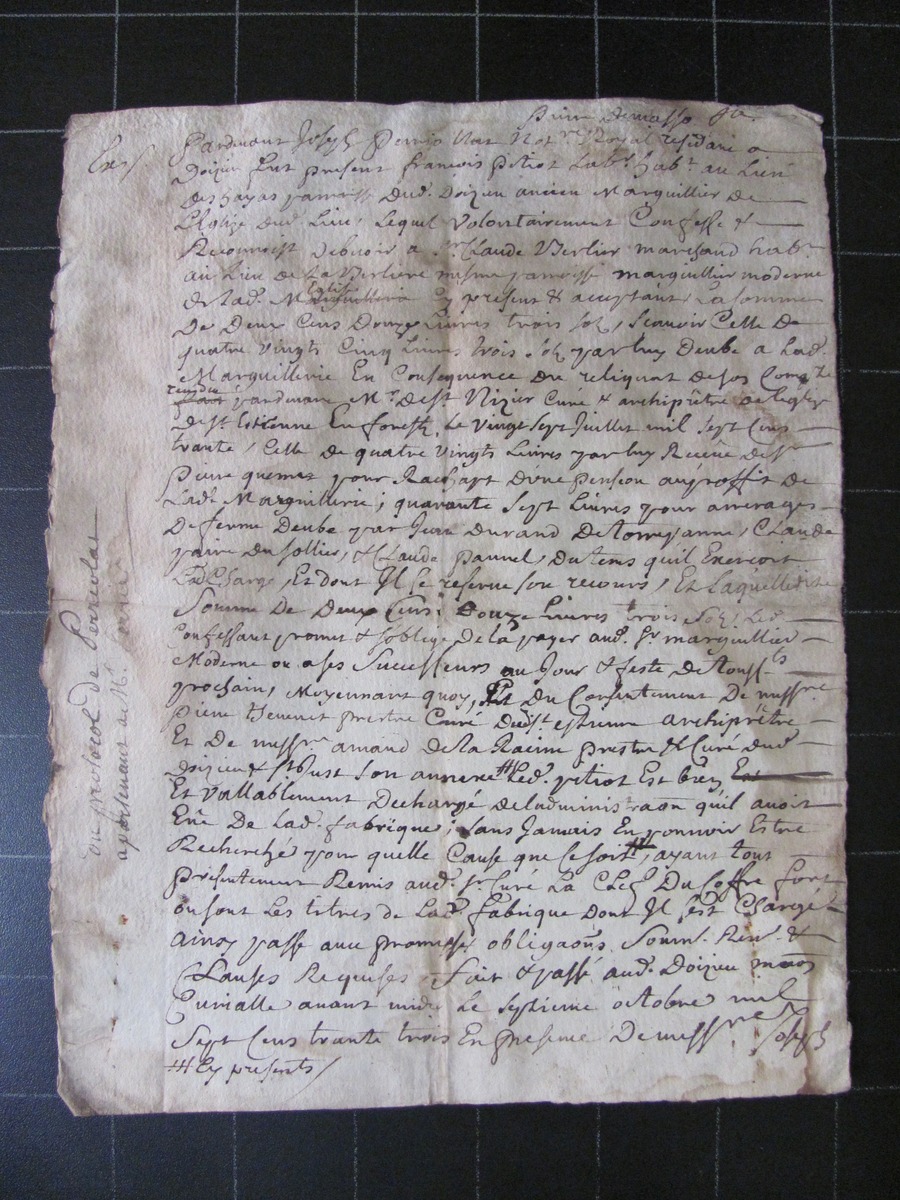 Pardevant Joseph Perrin Not.re Royal residant a
Doizieu fut present françois petiot Lab.r hab.t au Lieu
des hayas parroisse Dud. Doizieu ancien Marguillier de
L'Eglize dud. Lieu, Lequel Volontairement Confesse &
Reconnoist Debvoir a S.r Claude Verlier marchand hab.t
au Lieu de La Verliere mesme parroisse marguillier moderne
de lad. Eglise Cy present & acceptant La somme
De Deux Cens Douze Livres trois sol, scavoir Celle de
quatre vingts Cinq Livres trois sol par luy Deube a Lad.
Marguillerie En Consequence du reliquat de ses Comptes
rendu pardevant M.r de S.t Nizier Curé & archiprêtre de leglize
de S.t Estienne En forestz, Le vingt sept Juillet mil sept Cens
trante, Celle de quatre vingts Livres par luy Receue de
pierre pour Rachapt d'une pension au proffit de
Lad. Marguillerie; quarante sept Livres pour arrerages
De ferme Deube par Jean Durand De Claude
paire du sollier, & Claude du tems quil Exercoit
Lad. Charge, Et dont Il se reserve son recours, Et Laquelle dite
Somme De Deux Cens Douze Livres trois Sol. Led.
Confessant promet & s'oblige De la payer aud. S.r marguillier
Moderne ou a ses Successeurs au Jour & feste de Touss.ts
prochain, Moyennant quoy, du Consentement De mess.re
pierre Thevenet prestre Curé dud. S.t estienne archiprêtre
Et De mess.re amand de la Racine prestre & Curé dud.
Doizieu & S.t Just Son annexe Led. petiot Est bien
Et vallablement Dechargé de Ladministraon quil avoit
Eue De Lad. fabrique; sans Jamais En pouvoir Estre
Recherché pour quelle Cause que ce soit, ayant tous
presentement Remis aud. S.r Curé La Clef Du Coffre fort
ou sont Les titres de Lad. fabrique dont Il s'est Chargé
ainsy passé avec promesses obligaons. Soum. Ren. &
Clauses Requises. Fait & passé aud. Doizieu maison
Curialle avant midy Le septieme octobre mil
Sept Cens trante trois En presence De mess.re Joseph
Cy presents
au protocol de
apartenant de M.r